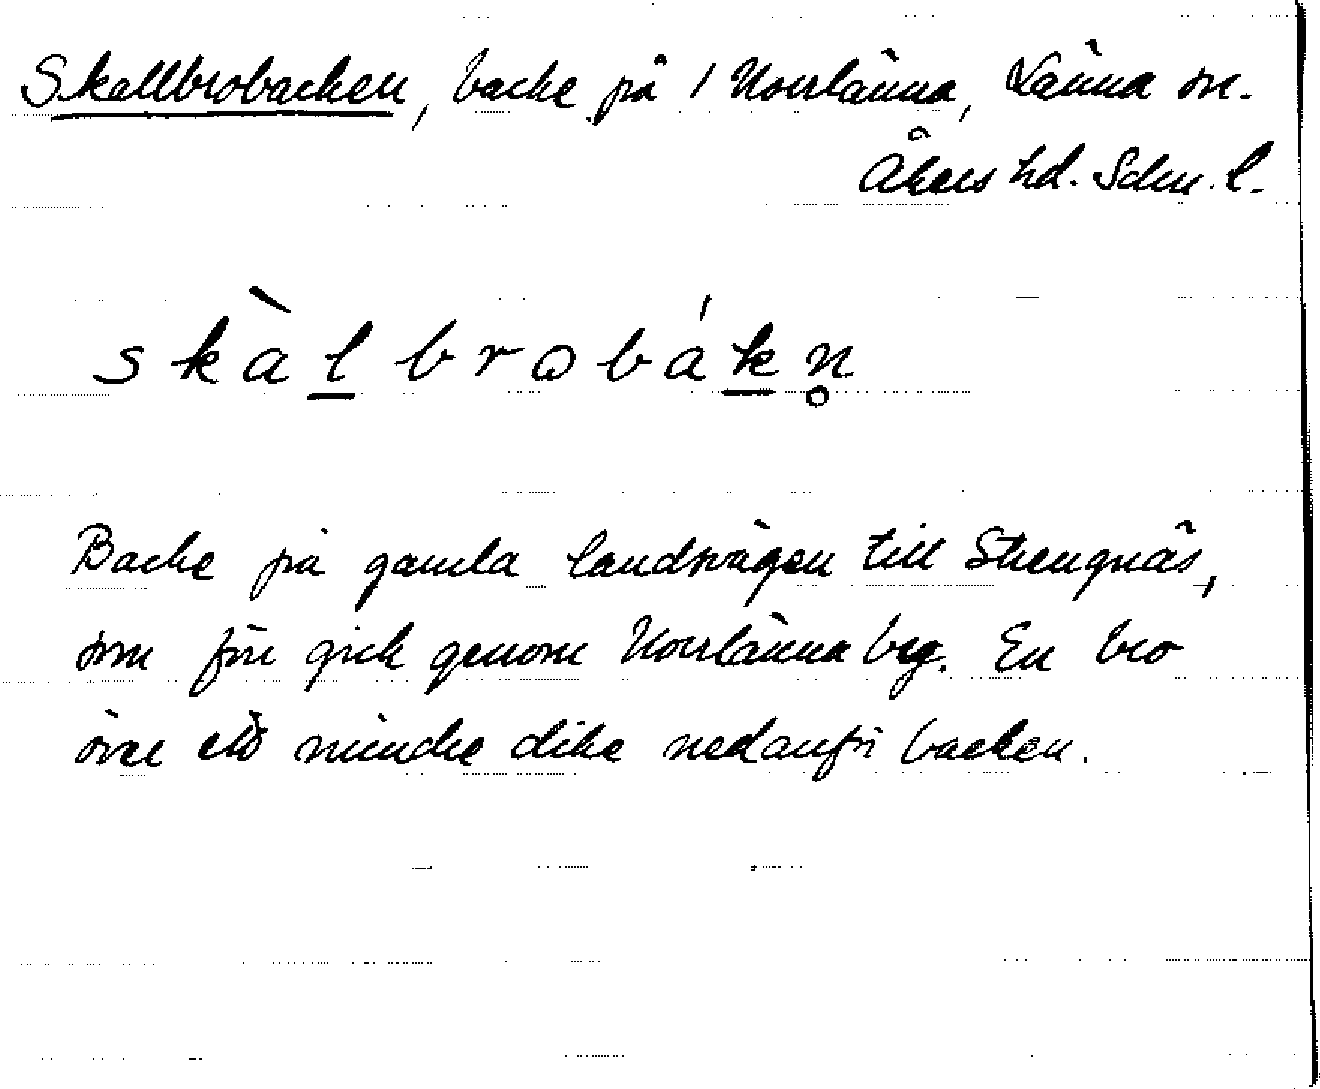 Skallbrobacken, backe på 1 Norrlänna, Länna sn.
Åkers hd. Sdm. l.
skàl̲brobák̲n̥
Backe på gamla landsvägen till Strengnäs,
som förr gick genom Norrlänna byg. En bro
över ett mindre dike nedanför backen.